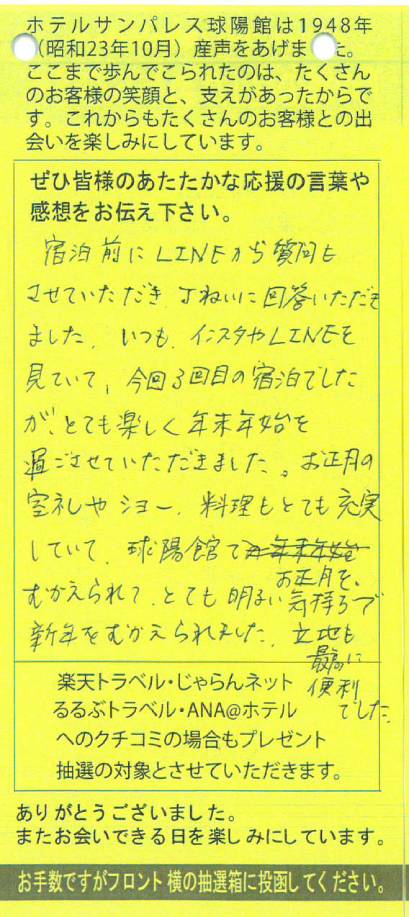 ホテルサンパレス球陽館は1948年
（昭和23年10月）産声をあげま た。
ここまで歩んでこられたのは、たくさん
のお客様の笑顔と、支えがあったからで
す。これからもたくさんのお客様との出
会いを楽しみにしています。
ぜひ皆様のあたたかな応援の言葉や
感想をお伝え下さい。
宿泊前にLINEから質問も
させていただき、丁ねいに回答いただき
ました。いつも、インスタやLINEを
見ていて、今回3回目の宿泊でした
が、とても楽しく年末年始を
過ごさせていただきました。お正月の
室礼やショー、料理もとても充実
していて、球陽館で年末年始
お正月を、
むかえられて、とても明るい気持ちで
新年をむかえられました。立地も
最高に
便利
でした。
楽天トラベル・じゃらんネット
るるぶトラベル・ANA@ホテル
へのクチコミの場合もプレゼント
抽選の対象とさせていただきます。
ありがとうございました。
またお会いできる日を楽しみにしています。
お手数ですがフロント横の抽選箱に投函してください。